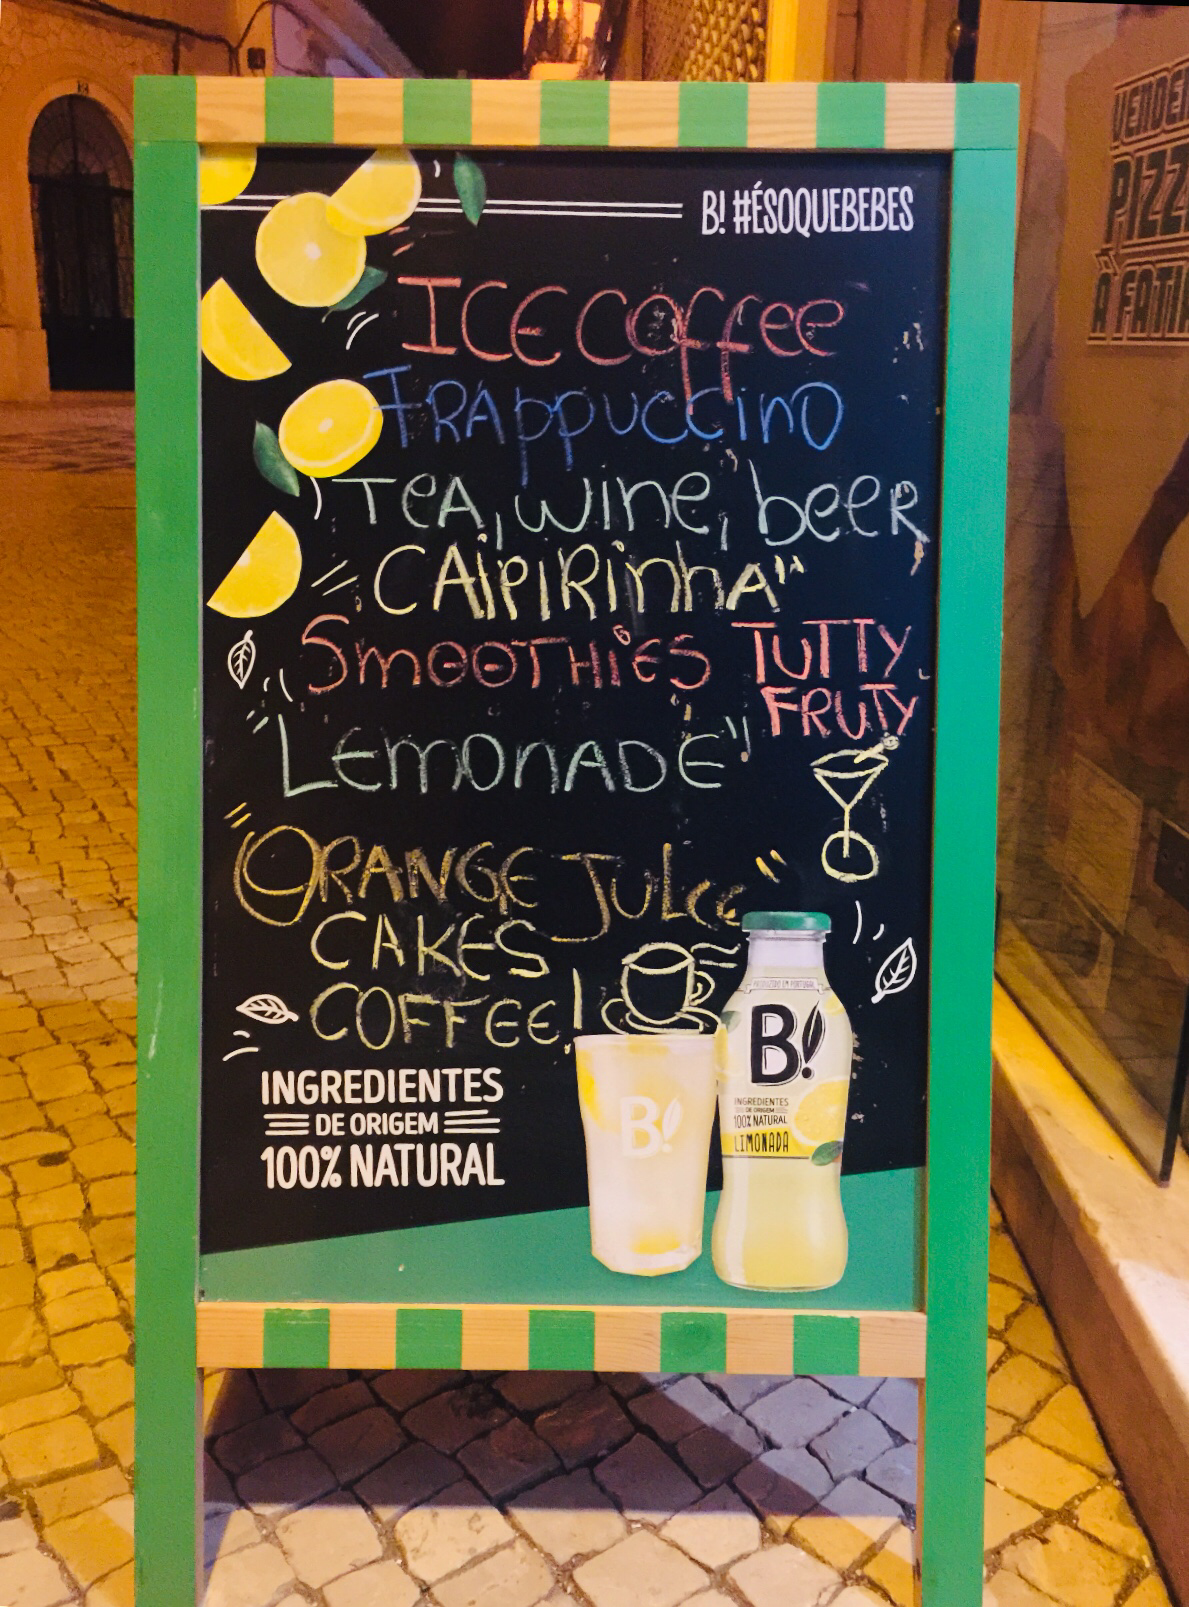 B! #ÉSOQUEBEBES
ICE Coffee
FRAppuccino
TeA, wine, beeR
"CAipiRinhA"
SmOOTHiES TUTTY
FRUTY
"LEmOnADE"
"ORANGE JUICE"
CAKES
COFFEE!
INGREDIENTES
DE ORIGEM
100% NATURAL
B!
PRODUZIDO EM PORTUGAL
B!
INGREDIENTES
DE ORIGEM
100% NATURAL
LIMONADA
PIZZ